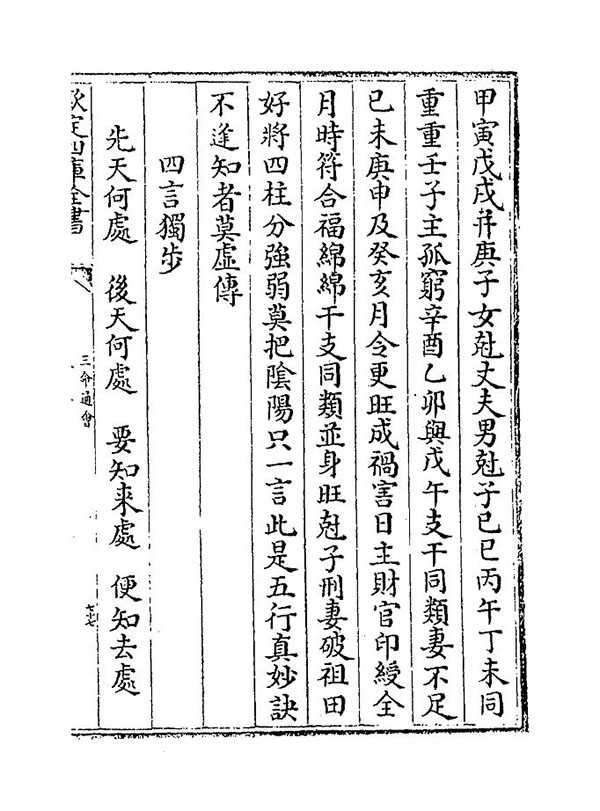 甲寅戊戌并庚子女尅丈夫男尅子己巳丙午丁未同
重重壬子主孤窮辛酉乙卯與戊午支干同類妻不足
己未庚申及癸亥月令更旺成禍害日主財官印綬全
月時符合福綿綿干支同類並身旺尅子刑妻破祖田
好將四柱分強弱莫把陰陽只一言此是五行真妙訣
不逢知者莫虛傳
四言獨步
先天何處　後天何處　要知来處　便知去處
欽定四庫全書
三命通會